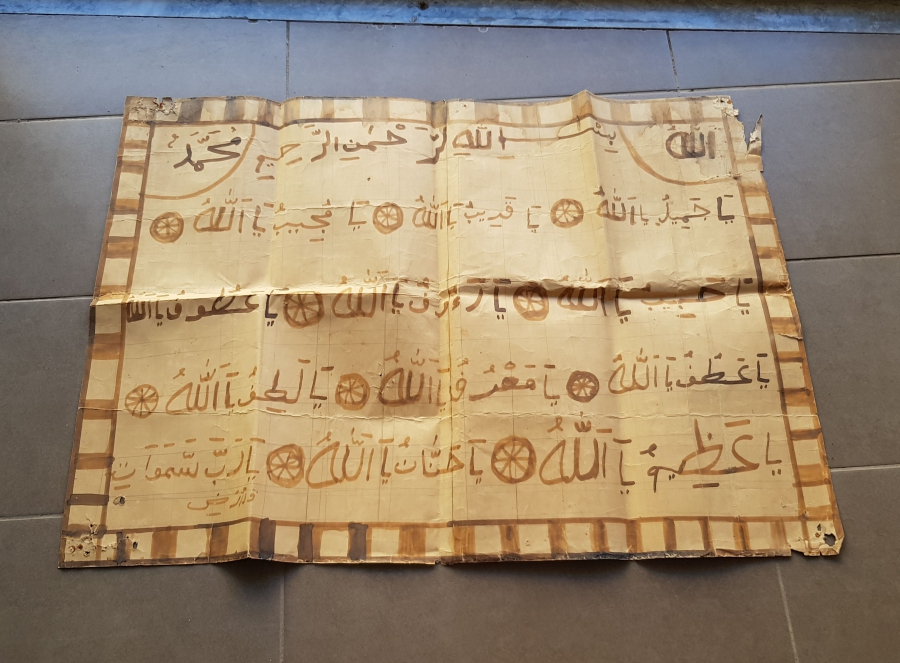 الله بِسْمِ اللهِ الرَّحْمٰنِ الرَّحِيمِ مُحَمَّدْ
يَا حَمِيدُ يَا اَللّٰهُ يَا قَدِيبُ يَا اَللّٰهُ يَا مُجِيبُ يَا اَللّٰهُ
يَا حَبِيبُ يَا اَللّٰهُ يَا رَءُوفُ يَا اَللّٰهُ يَا عَطُوفُ يَا اَللّٰهُ
يَا عَطُفُ يَا اَللّٰهُ يَا مَعْرُفُ يَا اَللّٰهُ يَا لَطِفُ يَا اَللّٰهُ
يَا عَظِيمُ يَا اَللّٰهُ يَا حَنَّانُ يَا اَللّٰهُ يَا رَبَّ سَّمَوَاتِ